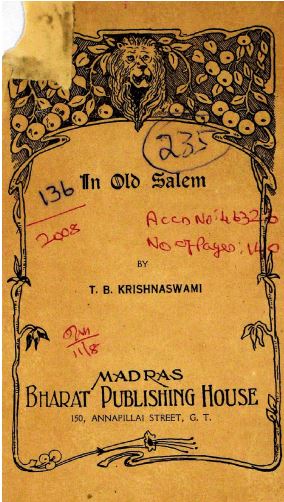 235
136
In Old Salem
2008
Acco No: 4632
No of Pages: 140
BY
T. B. KRISHNASWAMI
11/8
MADRAS
BHARAT PUBLISHING HOUSE
150, ANNAPILLAI STREET, G. T.